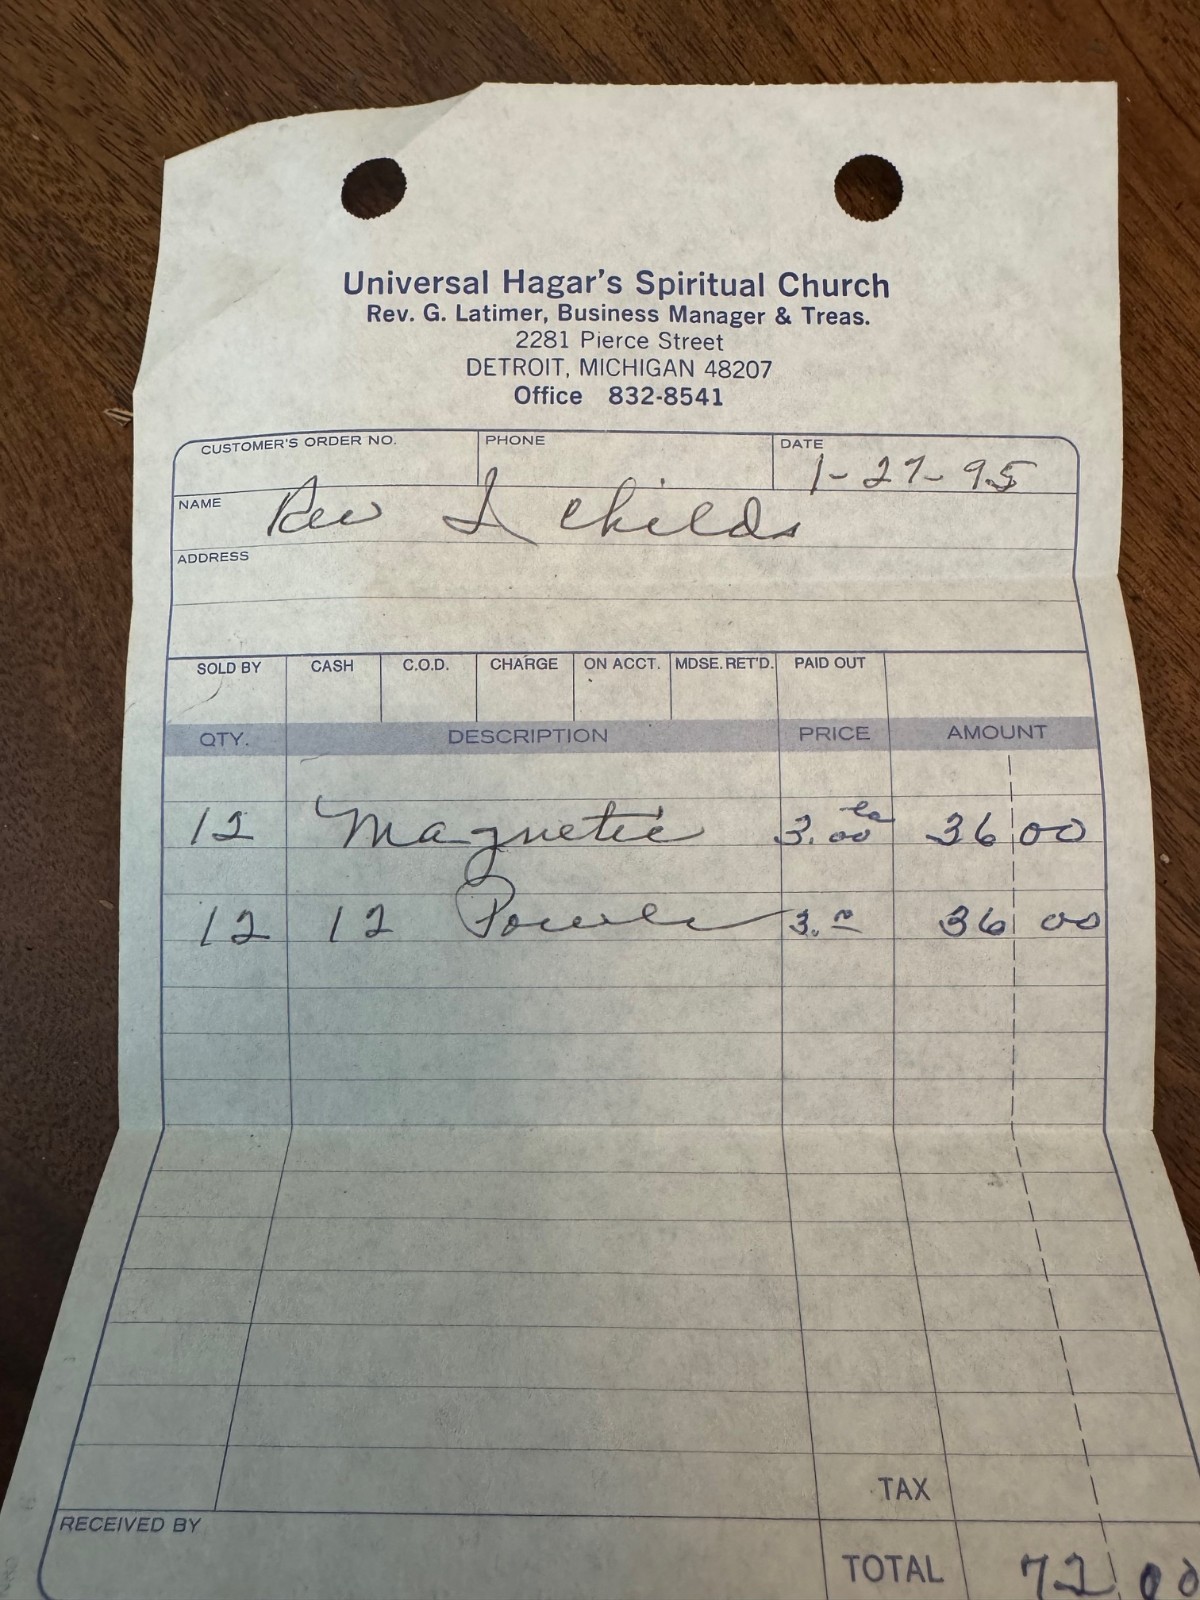 Universal Hagar's Spiritual Church
Rev. G. Latimer, Business Manager & Treas.
2281 Pierce Street
DETROIT, MICHIGAN 48207
Office 832-8541
CUSTOMER'S ORDER NO. PHONE DATE
1-27-95
NAME Rev I Childs
ADDRESS
SOLD BY CASH C.O.D. CHARGE ON ACCT. MDSE. RET'D. PAID OUT
QTY. DESCRIPTION PRICE AMOUNT
12 Magnetic 3.00 ea 36 00
12 12 Power 3. 36 00
TAX
RECEIVED BY
TOTAL 72 00